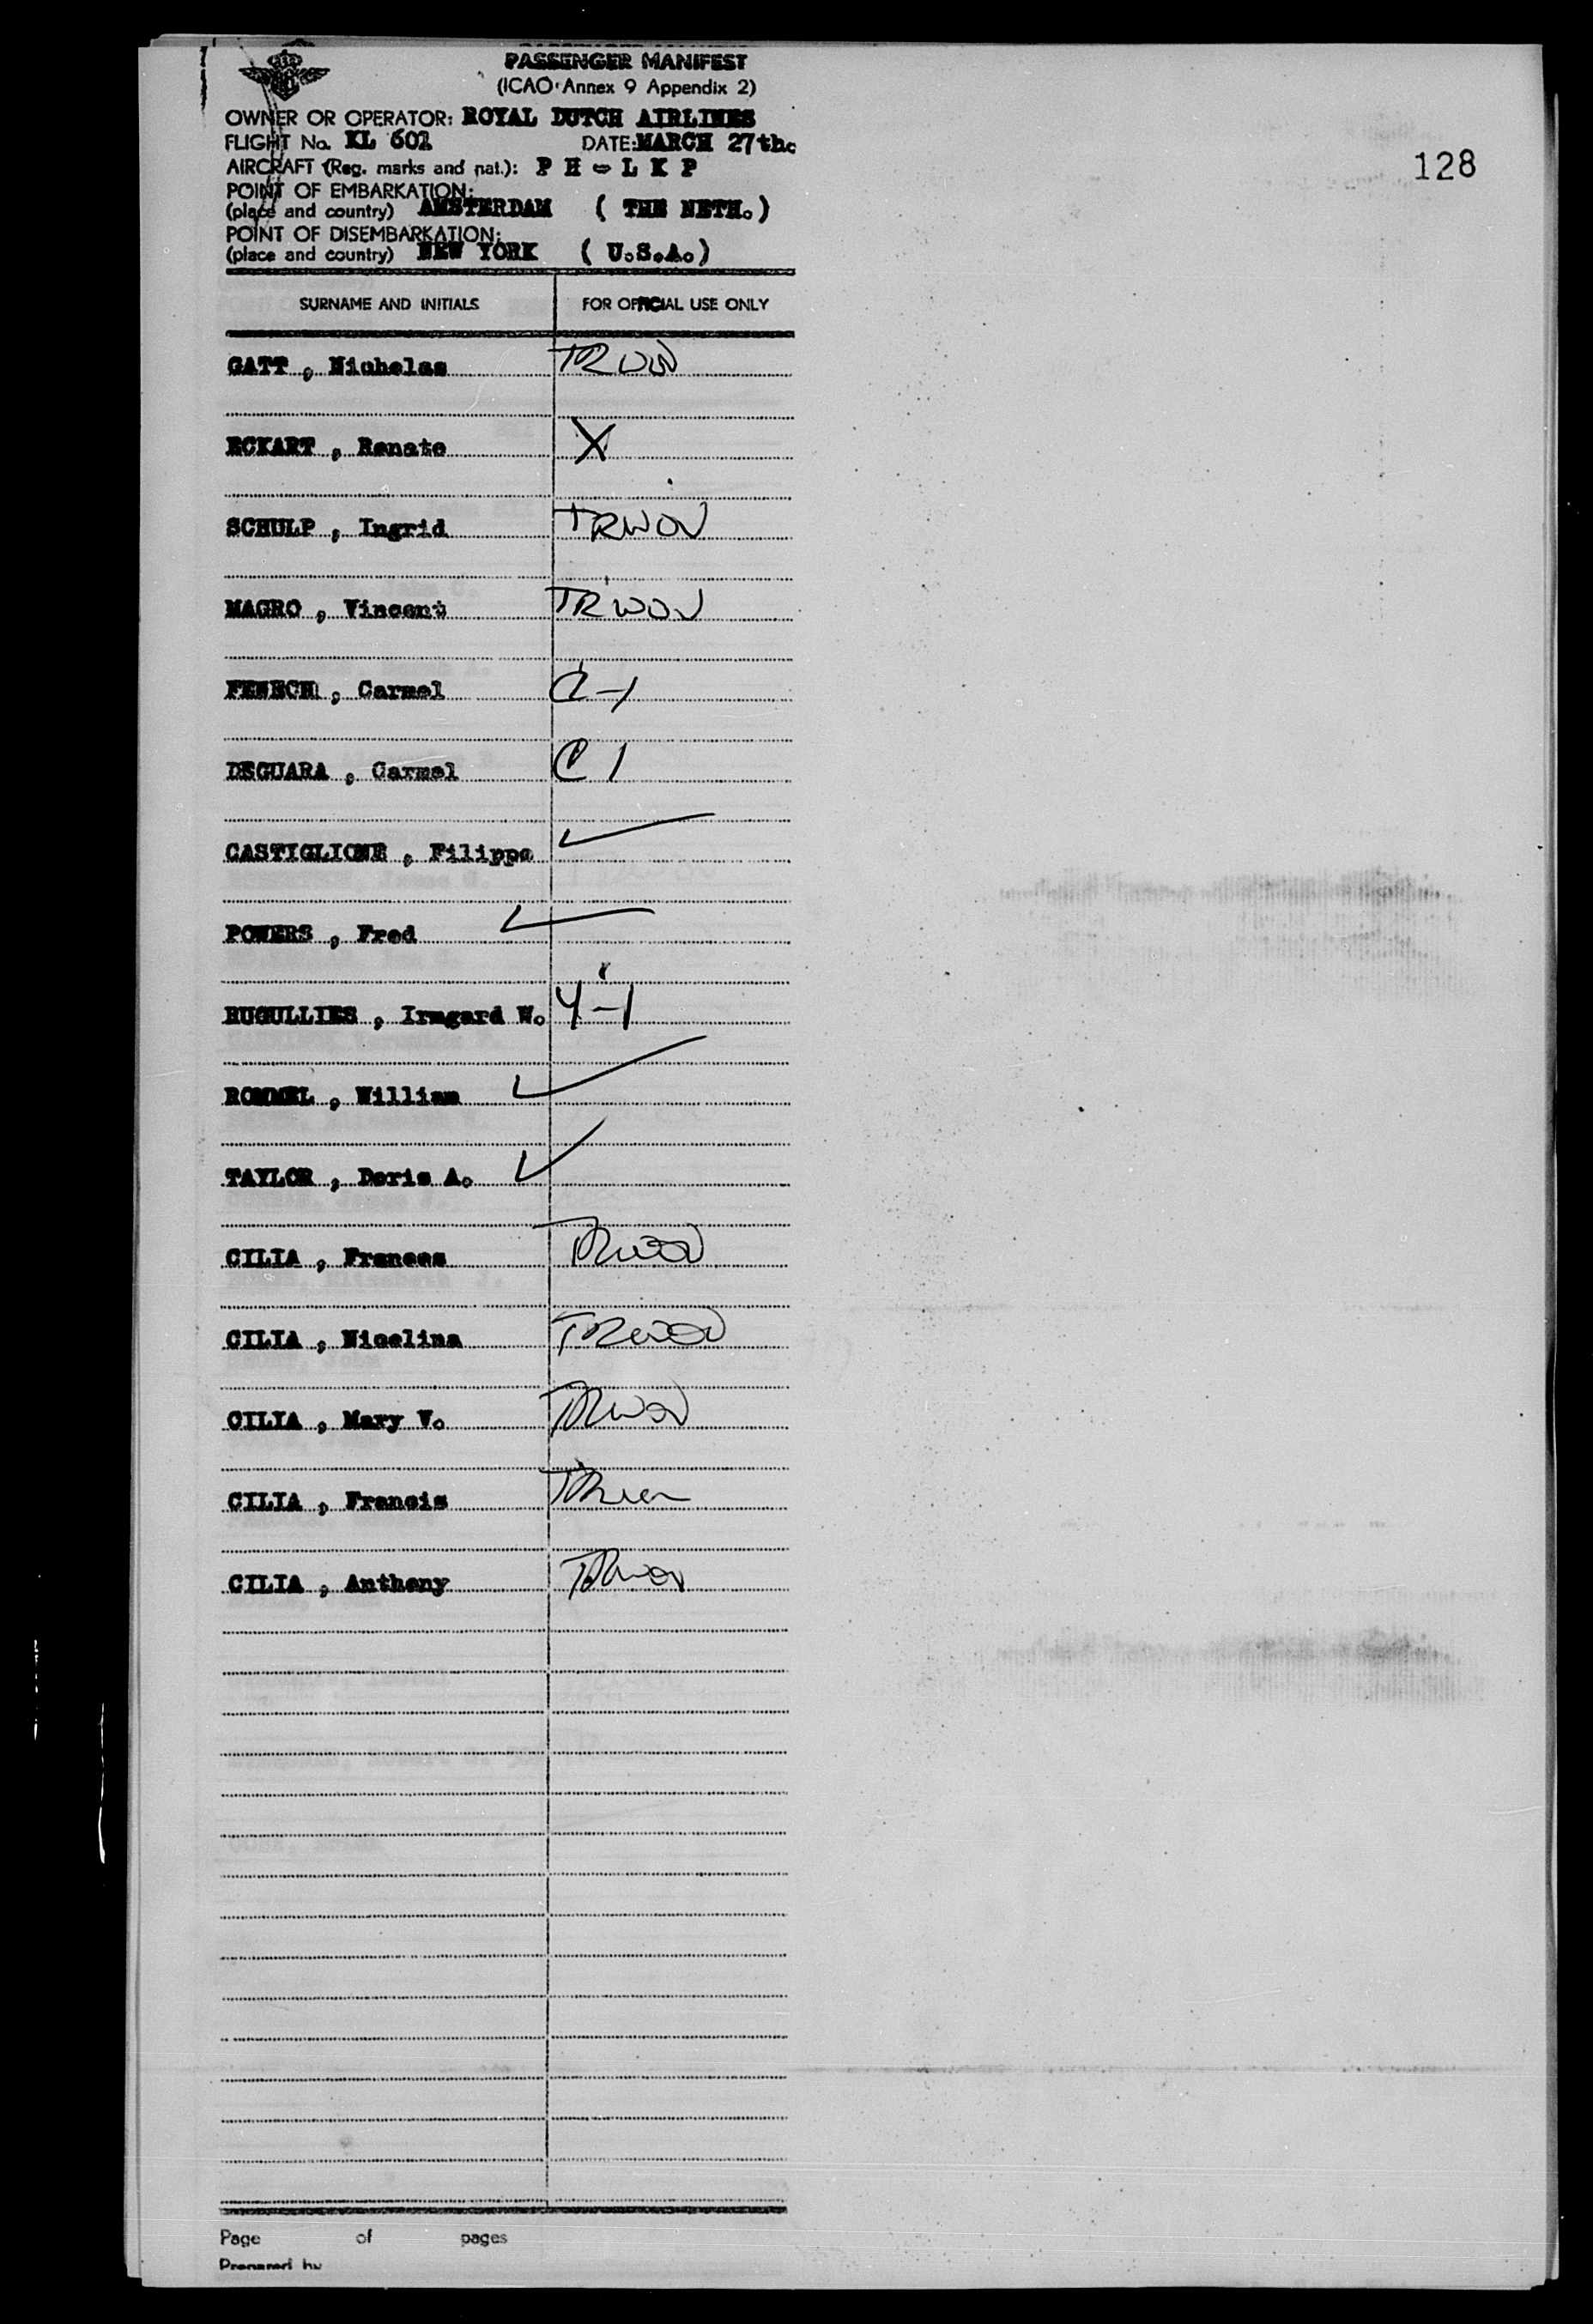 PASSENGER MANIFEST
(ICAO Annex 9 Appendix 2)
OWNER OR OPERATOR: ROYAL DUTCH AIRLINES
FLIGHT No. KL 601 DATE: MARCH 27th.
128
AIRCRAFT (Reg. marks and nat.): P H - L K P
POINT OF EMBARKATION:
(place and country) AMSTERDAM ( THE NETH.)
POINT OF DISEMBARKATION:
(place and country) NEW YORK ( U.S.A.)
SURNAME AND INITIALS FOR OFFICIAL USE ONLY
GATT , Nicholas TRWOV
ECKART , Renate X
SCHULP , Ingrid TRWOV
MAGRO , Vincent TRWOV
FENECH , Carmel C-1
DEGUARA , Carmel C 1
CASTIGLIONE , Filippa
POWERS , Fred
RUGULLIES , Irmgard W. 4-1
ROMMEL , William
TAYLOR , Doris A.
CILIA , Frances TRWOV
CILIA , Nicolina TRWOV
CILIA , Mary V. TRWOV
CILIA , Francis
CILIA , Anthony TRWOV
Page of pages
Prepared by